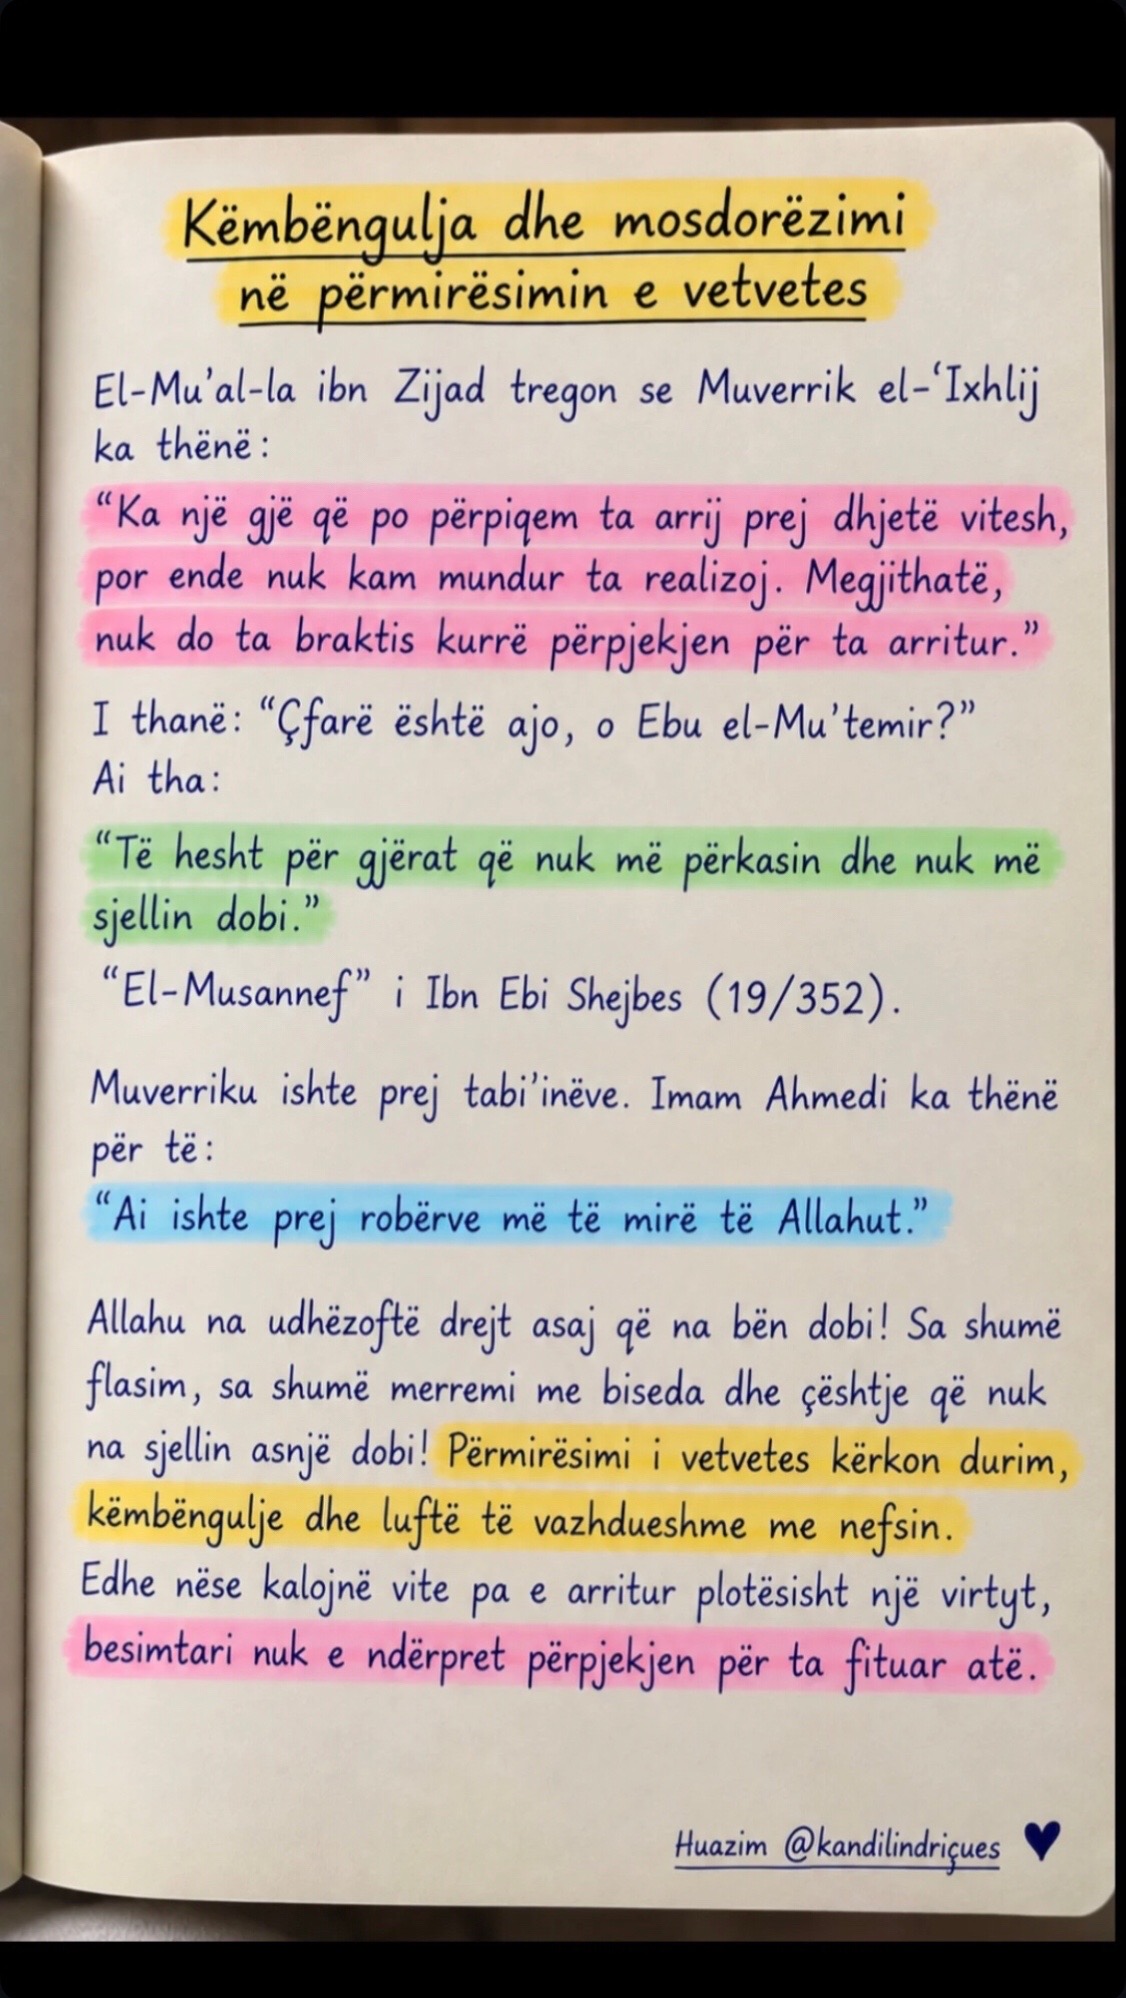 Këmbëngulja dhe mosdorëzimi
në përmirësimin e vetvetes
El-Mu’al-la ibn Zijad tregon se Muverrik el-‘Ixhlij
ka thënë:
“Ka një gjë që po përpiqem ta arrij prej dhjetë vitesh,
por ende nuk kam mundur ta realizoj. Megjithatë,
nuk do ta braktis kurrë përpjekjen për ta arritur.”
I thanë: “Çfarë është ajo, o Ebu el-Mu’temir?”
Ai tha:
“Të hesht për gjërat që nuk më përkasin dhe nuk më
sjellin dobi.”
“El-Musannef” i Ibn Ebi Shejbes (19/352).
Muverriku ishte prej tabi’inëve. Imam Ahmedi ka thënë
për të:
“Ai ishte prej robërve më të mirë të Allahut.”
Allahu na udhëzoftë drejt asaj që na bën dobi! Sa shumë
flasim, sa shumë merremi me biseda dhe çështje që nuk
na sjellin asnjë dobi! Përmirësimi i vetvetes kërkon durim,
këmbëngulje dhe luftë të vazhdueshme me nefsin.
Edhe nëse kalojnë vite pa e arritur plotësisht një virtyt,
besimtari nuk e ndërpret përpjekjen për ta fituar atë.
Huazim @kandilindriçues